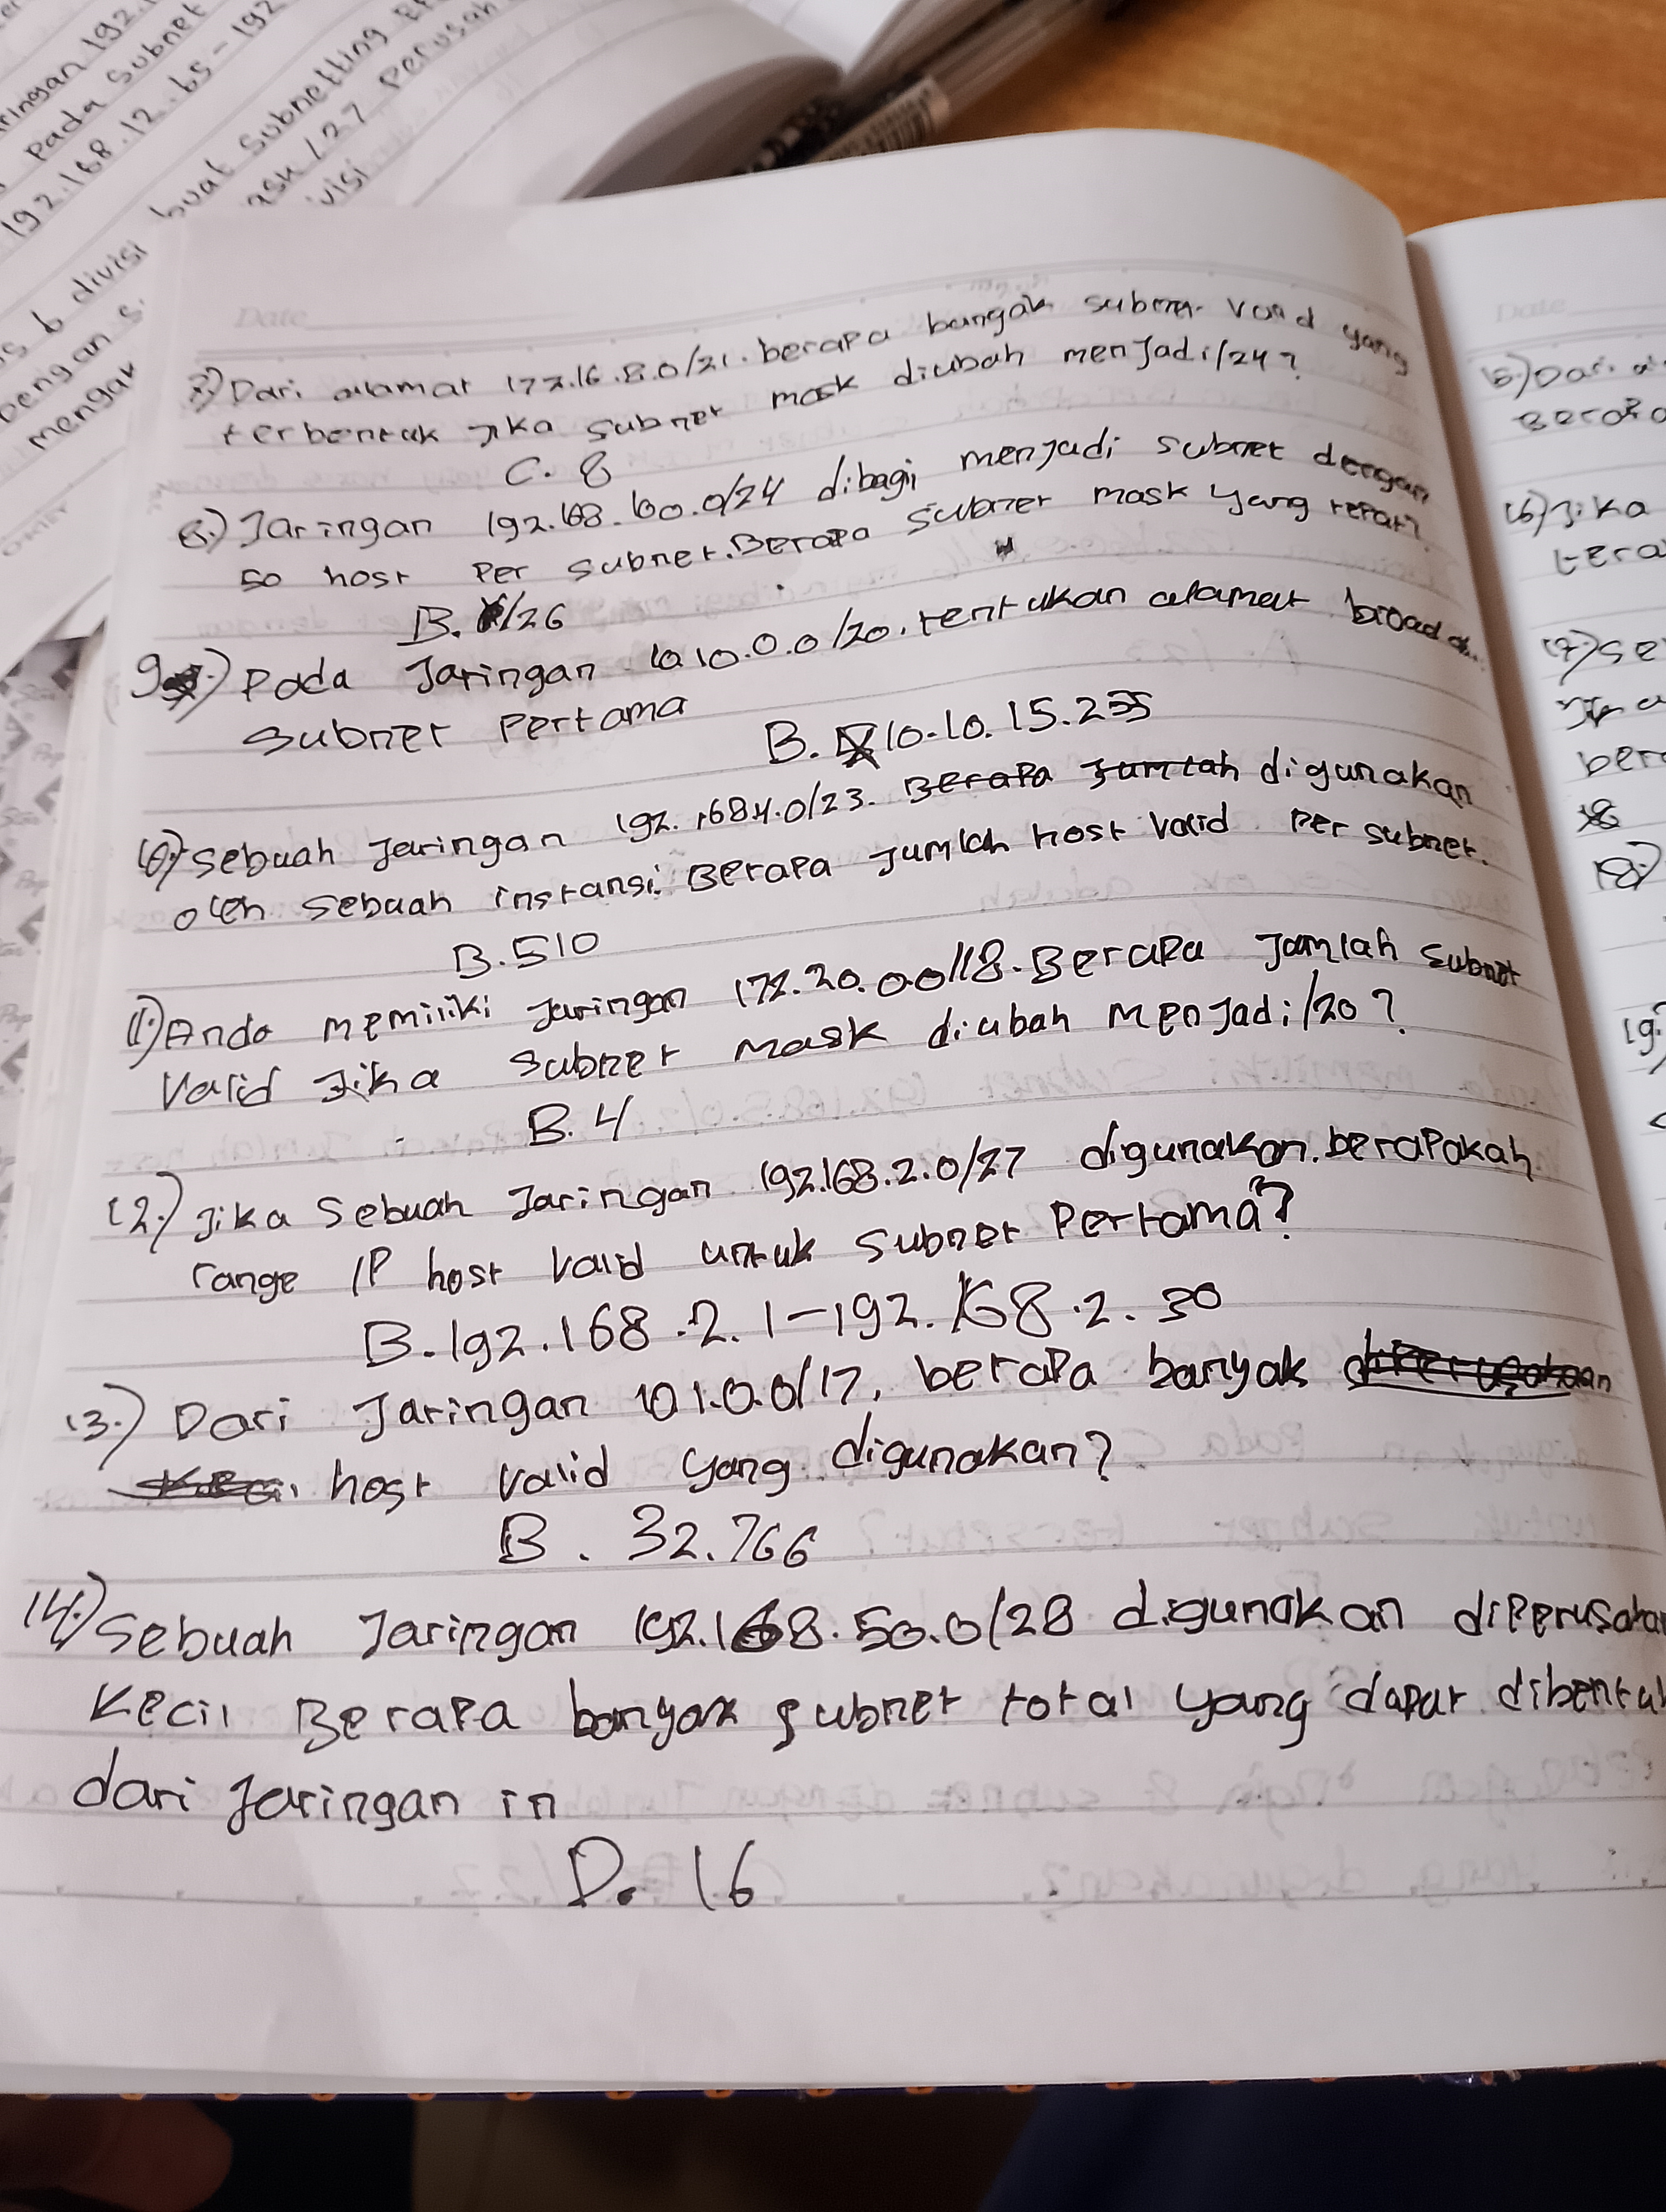 ringan 192.
Pada Subnet
192.168.12.65-192
s 6 divisi buat Subnetting
ask /27 Perusah
Dengan s. visi
mengak
Date
7.) Dari alamat 172.16.8.0/21. berapa bangak subnet Valid yang
terbentuk Jika Subnet mask diubah menJadi/24?
C. 8
8.) Jaringan 192.168.60.0/24 dibagi menjadi subnet dengan
50 host Per subnet.Berapa Subnet mask yang tepat?
B. /26
9.) Pada Jaringan 10.10.0.0/20. tentukan alamat broad
Subnet Pertama
B. 10.10.15.255
10.) Sebuah Jaringan 192.1684.0/23. Berapa Jumlah digunakan
oleh sebuah instansi. Berapa Jumlah host Valid Per subnet.
B.510
11.) Anda memiliki Jaringan 172.20.0.0/18.Berapa Jamlah Subnet
Valid Jika Subnet Mask diubah MenJadi/20?
B.4
12.) Jika Sebuah Jaringan 192.168.2.0/27 digunakan.berapakah
range IP host Valid untuk Subnet Pertama?
B.192.168.2.1-192.168.2.30
13.) Dari Jaringan 10.1.0.0/17, berapa banyak
host Valid yang digunakan?
B. 32.766
14.) Sebuah Jaringan 192.168.50.0/28 digunakan diPerusahaa
Kecil Berapa banyak Subnet total yang dapat dibentuk
dari Jaringan in
D. 16
Date
15.) Dari a
Berapa
16.) Jika
tera
17.) Se
bera
18.)
19.